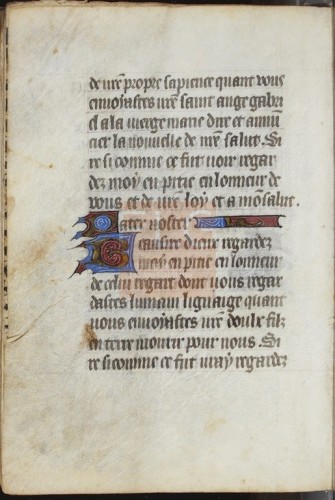 de vr̄e propre sapience quant vous
enuoiastes vr̄e saint ange gabri
el a la vierge marie dire et anũ
cier la nouuelle de nr̄e salut. Si
re si comme ce fut voir regar
dez moy en pitie en lonneur de
vous et de vr̄e loy et a mō salut.
Pater noster
Beausire dieux regardez
moy en pitie en lonneur
de celui regart dont vous regar
dastes lumain lignage quant
vous enuoyastes vr̄e doulx filz
en terre mourir pour nous. Si
re si comme ce fut vray regardez